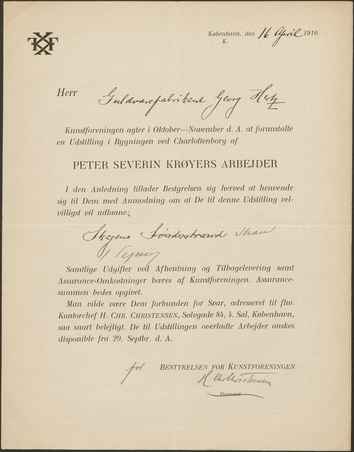 København, den 16 April 1910
K.
Herr Guldvarefabrikend Georg Hetz
Kunstforeningen agter i Oktober—November d. A. at foranstalte
en Udstilling i Bygningen ved Charlottenborg af
PETER SEVERIN KRØYERS ARBEJDER
I den Anledning tillader Bestyrelsen sig herved at henvende
sig til Dem med Anmodning om at De til denne Udstilling vel-
villigst vil udlaane:
Skagens
Samtlige Udgifter ved Afhentning og Tilbagelevering samt
Assurance-Omkostninger bæres af Kunstforeningen. Assurance-
summen bedes opgivet.
Man vilde være Dem forbunden for Svar, adresseret til fhv.
Kontorchef H. CHR. CHRISTENSEN, Sølvgade 84, 4. Sal, København,
saa snart belejligt. De til Udstillingen overladte Arbejder ønskes
disponible fra 29. Septbr. d. A.
for BESTYRELSEN FOR KUNSTFORENINGEN